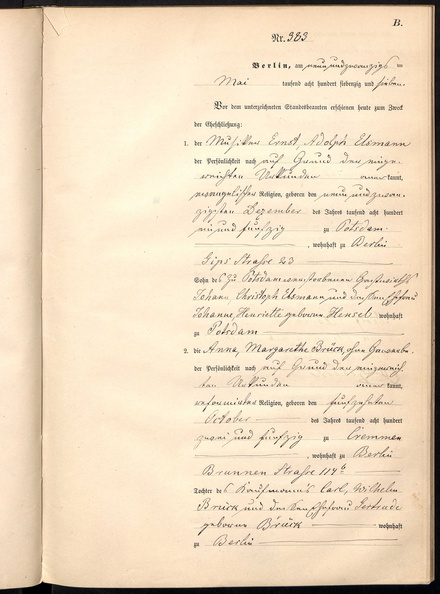 B.
Nr. 383
Berlin, am neun und zwanzigsten
Mai tausend acht hundert siebenzig und sieben.
Vor dem unterzeichneten Standesbeamten erschienen heute zum Zweck
der Eheschließung:
1. der Musiker Ernst Adolph Elsmann
der Persönlichkeit nach auf Grund der einge-
reichten Urkunden anerkannt,
evangelischer Religion, geboren den neun und zwan-
zigsten Dezember des Jahres tausend acht hundert
ein und fünfzig zu Potsdam
, wohnhaft zu Berlin
Gips Straße 23
Sohn des zu Potsdam verstorbenen Gastwirths
Johann Christoph Elsmann und dessen Ehefrau
Johanne Henriette geborenen Hensel wohnhaft
zu Potsdam
2. die Anna, Margarethe Brück, ohne Gewerbe
der Persönlichkeit nach auf Grund der eingereich-
ten Urkunden anerkannt,
reformirter Religion, geboren den fünfzehnten
October des Jahres tausend acht hundert
zwei und fünfzig zu Cremmen
, wohnhaft zu Berlin
Brunnen Straße 114b
Tochter des Kaufmanns Carl, Wilhelm
Brück und dessen Ehefrau Gertrude
geborene Brück wohnhaft
zu Berlin